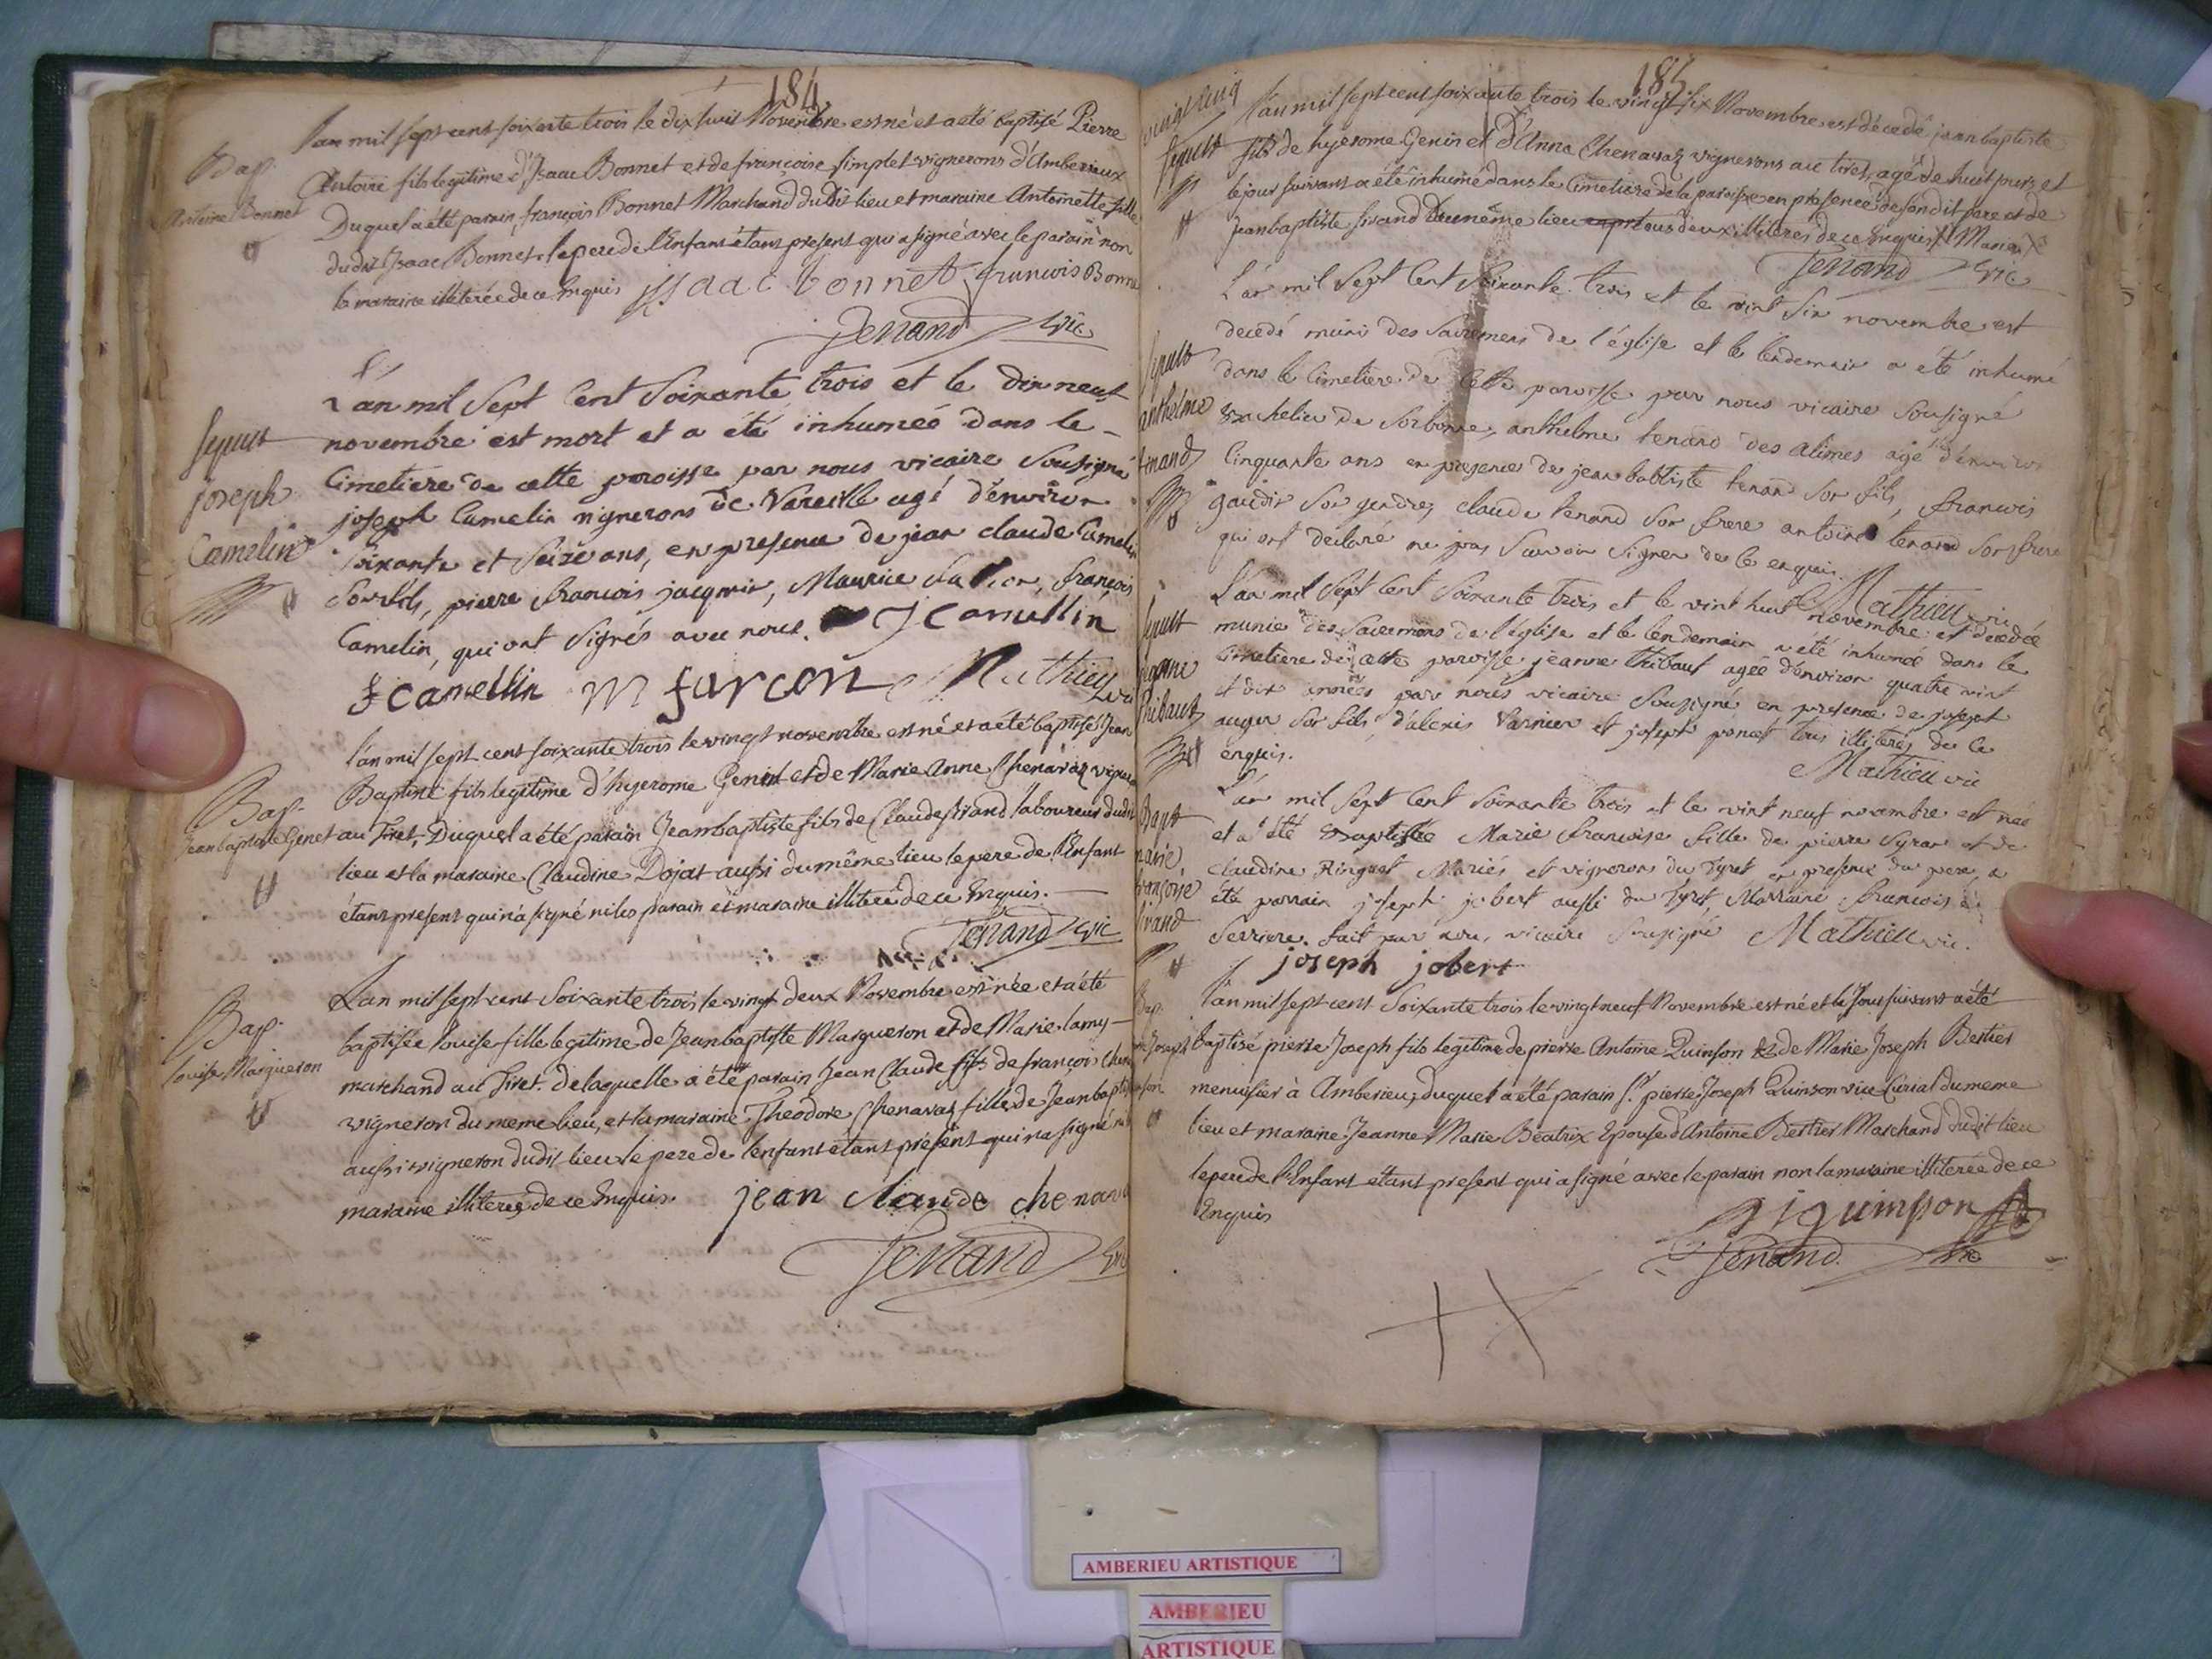 184
Bap.
Antoine Bonnet
L'an mil sept cent soixante trois le dix huit Novembre est né et a été baptisé Pierre
Antoine fils legitime d'Isaac Bonnet et de francoise simplet vignerons d'Amberieux
Duquel a été parain, françois Bonnet Marchand dudit lieu et maraine Antoinette fille
dudit Isaac Bonnet. le pere de l'Enfant étant present qui a signé avec le parain non
la maraine illiterée de ce Enquis isaac bonnet francois Bonne
Tenand vic
sepult
joseph
Camelin
L'an mil sept Cent Soixante trois et le dix neuf
novembre est mort et a été inhumeé dans le
Cimetiere de cette paroisse par nous vicaire Sousigné
joseph Camelin vignerons de Vareille agé d'environ
soixante et seize ans, en presence de jean claude Camelin
son fils, pierre francois jacquin, Maurice, françois
Camelin, qui ont signés avec nous. J Camellin
f camellin m farcon Mathieu vic
Bap.
jean baptiste Genet
L'an mil sept cent soixante trois le vingt novembre est né et a été baptisé Jean
Baptiste fils legitime d'hyerome Genin et de Marie Anne Chenavaz vigneron
au Tiret, Duquel a été parain Jeanbaptiste fils de Claude sirand laboureur dudit
lieu et la maraine Claudine Dojat aussi du même lieu le pere de l'Enfant
étant present qui n'a signé ni les parain et maraine illiterée de ce Enquis.
Tenand vic
Bap.
louise Margueron
L'an mil sept cent Soixante trois le vingt deux Novembre est née et a été
baptisée louise fille legitime de Jeanbaptiste Margueron et de Marie lamy
marchand au Tiret. de laquelle a été parain Jean Claude fils de françois Chena
vigneron du meme lieu, et la maraine Theodore Chenavaz fille de Jeanbaptis
aussi vigneron dudit lieu le pere de l'enfant étant présent qui n'a signé ni
maraine illiterés de ce Enquis. jean claude chenava
Tenand vic
185
vingt cinq
sepult
L'an mil sept cent soixante trois le vingt six Novembre est décedé jean baptiste
fils de hyerome Genin et d'Anna Chenavaz vignerons au tiret, agé de huit jours et
le jour suivant a été inhumé dans le Cimetiere de la paroisse en présence de son dit pere et de
Jeanbaptiste sirand du même lieu tous deux illiteres de ce Enquis
Tenand vic
sepult
anthelme
tenand
L'an mil sept Cent Soixante trois et le vint six novembre est
decedé muni des sacremens de l'église et le lendemain a été inhumé
dans le Cimetiere de Cette paroisse par nous vicaire sousigné
Bachelier de Sorbonne, anthelme tenand des alimes agé d'environ
Cinquante ans en presence de jean babtiste tenand son fils, francois
gaudin son gendre, claude tenand son frere antoine tenand son frere
qui ont declaré ne pas scavoir signer de ce enquis.
Mathieu vic
sepult
jeanne
thibaut
L'an mil Sept Cent Soixante trois et le vint huit novembre est decedée
munie des Sacremens de l'église et le lendemain a été inhumée dans le
Cimetiere de cette paroisse jeanne thibaut agée d'environ quatre vint
et dix années par nous vicaire sousigné en presence de joseph
auger son fils, d'alexis Varnier et joseph poncet tous illiterés de ce
enquis.
Mathieu vic
Bapt
marie
françoise
sirand
L'an mil Sept Cent Soixante trois et le vint neuf novembre est nee
et a été Baptisée Marie francoise fille de pierre Syran et de
Claudine Ringuet Mariés et vignerons du Tyret en presence du pere, a
été parrain joseph jobert aussi du Tyret, Marraine francoise
Serriere. fait par nou, vicaire sousigné Mathieu vic.
joseph jobert
Bap.
L'an mil sept cent Soixante trois le vingt neuf Novembre est né et le Jour suivant a été
baptisé pierre Joseph fils legitime de pierre Antoine Quinson et de Marie Joseph Bertier
menuisier à Amberieu, duquel a été parain Sr. pierre Joseph Quinson vice Curial du meme
lieu et maraine Jeanne Marie Beatrix Epouse d'Antoine Bertier Marchand dudit lieu
le pere de l'Enfant etant present qui a signé avec le parain non la maraine illiterée de ce
Enquis
quinson
Tenand vic
AMBERIEU ARTISTIQUE
AMBERIEU
ARTISTIQUE